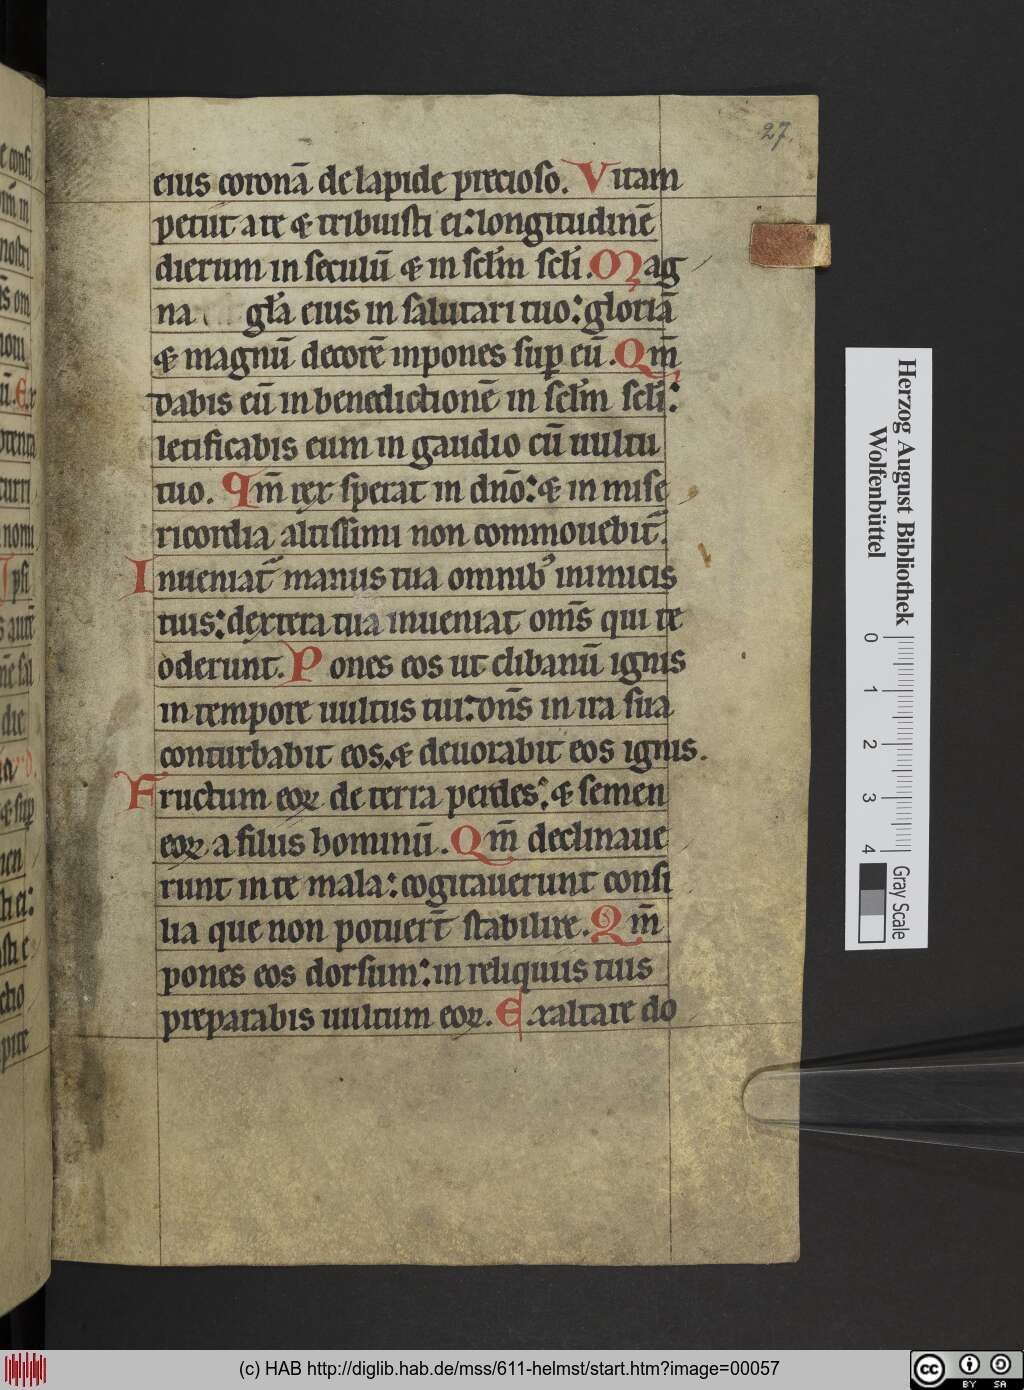 27.
eius coronā de lapide precioso. Vitam
petiit a te & tribuisti ei: longitudinē
dierum in seculū & in sclm scli. Mag
na gla eius in salutari tuo: gloriā
& magnū decorē inpones sup eū. Qm̄
dabis eū in benedictionē in sclm scli:
letificabis eum in gaudio cū uultu
tuo. Qm̄ rex sperat in dño: & in mise
ricordia altissimi non commouebit̄.
Inueniat̄ manus tua omnibꝰ inimicis
tuis: dextera tua inueniat oms̄ qui te
oderunt. Pones eos ut clibanū ignis
in tempore uultus tui: dns̄ in ira sua
conturbabit eos, & deuorabit eos ignis.
Fructum eoꝝ de terra perdes: & semen
eoꝝ a filiis hominū. Qm̄ declinaue
runt in te mala: cogitauerunt consi
lia que non potuer̄t stabilire. Qm̄
pones eos dorsum: in reliquiis tuis
preparabis uultum eoꝝ. Exaltare do
Herzog August Bibliothek
Wolfenbüttel
0 1 2 3 4
Gray Scale
(c) HAB http://diglib.hab.de/mss/611-helmst/start.htm?image=00057
cc BY SA